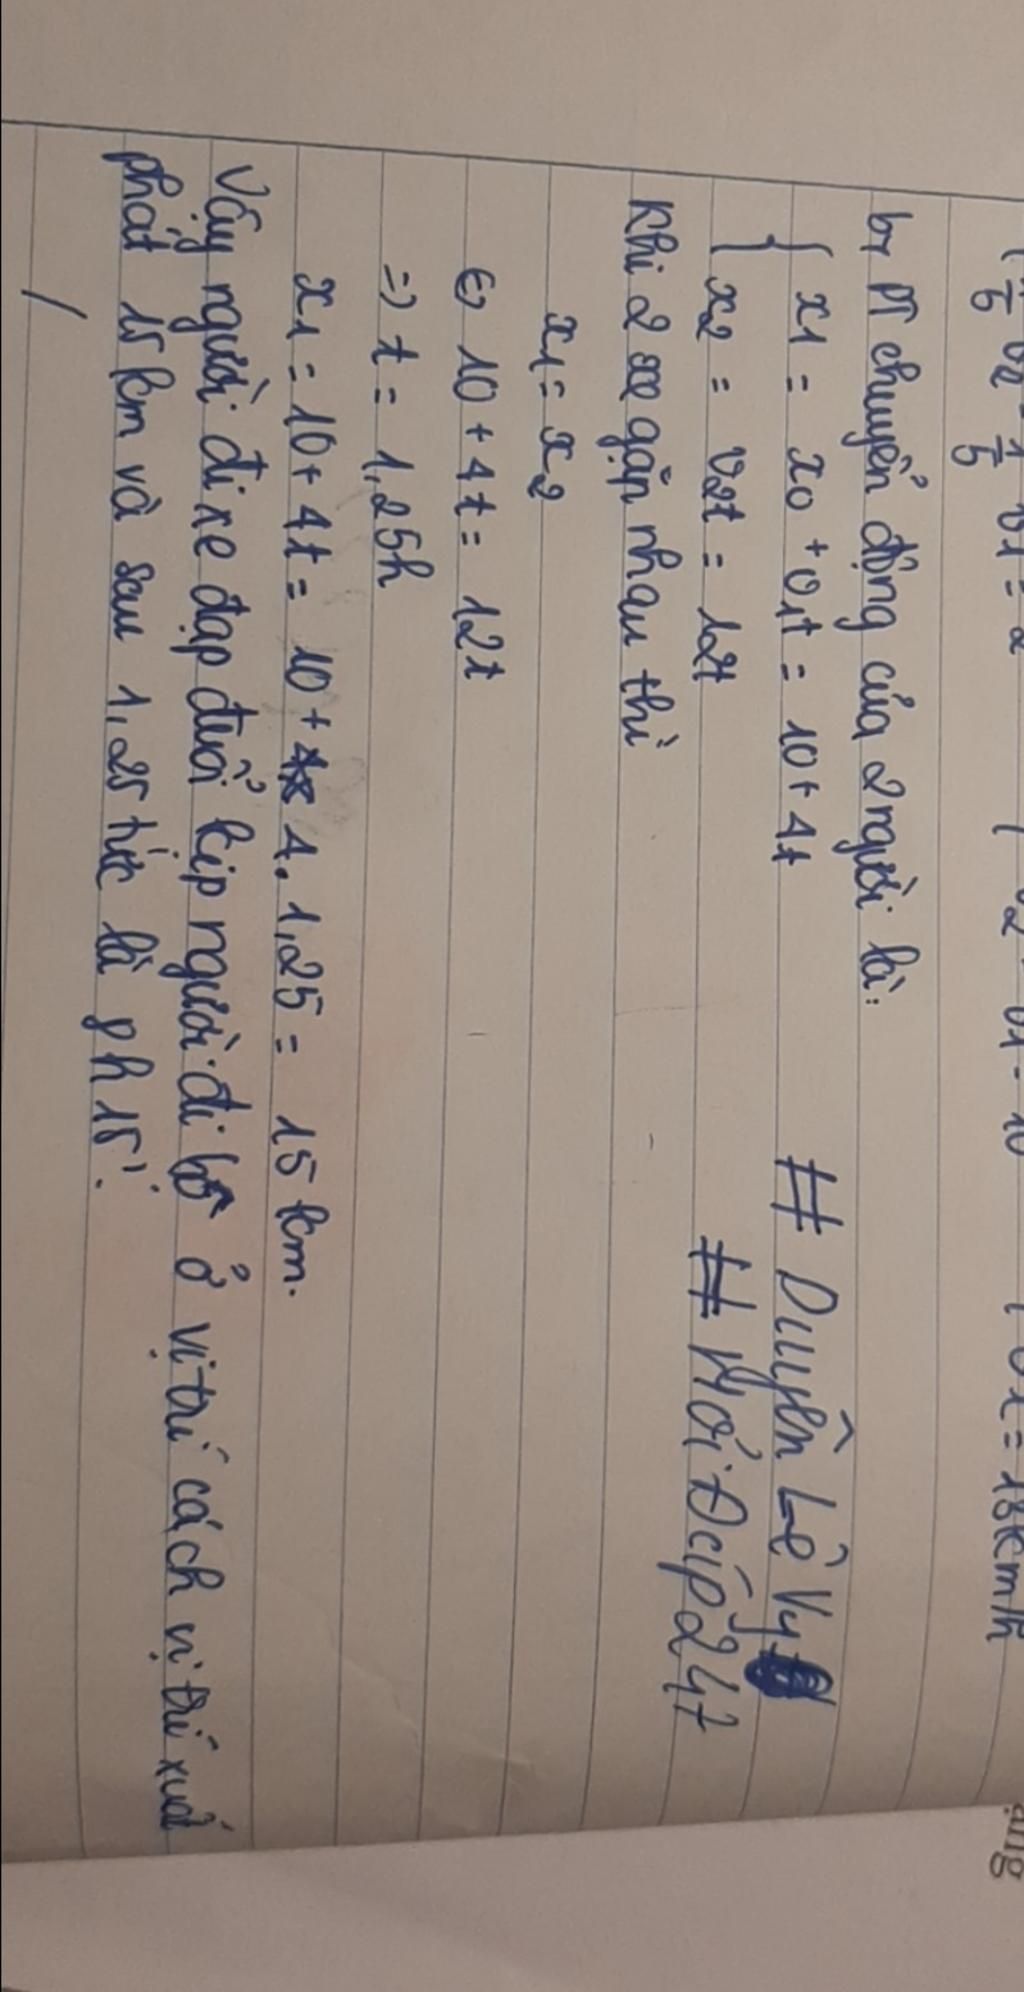 b, PT chuyển động của 2 người là:
{ x1 = x0 + v1t = 10 + 4t
x2 = v2t = 12t
# Duyên Lê Vy
# Hỏi Đáp 247
Khi 2 xe gặp nhau thì
x1 = x2
⇔ 10 + 4t = 12t
=> t = 1,25h
x1 = 10 + 4t = 10 + 4. 1,25 = 15 km.
Vậy người đi xe đạp đuổi kịp người đi bộ ở vị trí cách vị trí xuất
phát 15 km và sau 1,25 tức là 8h15'.